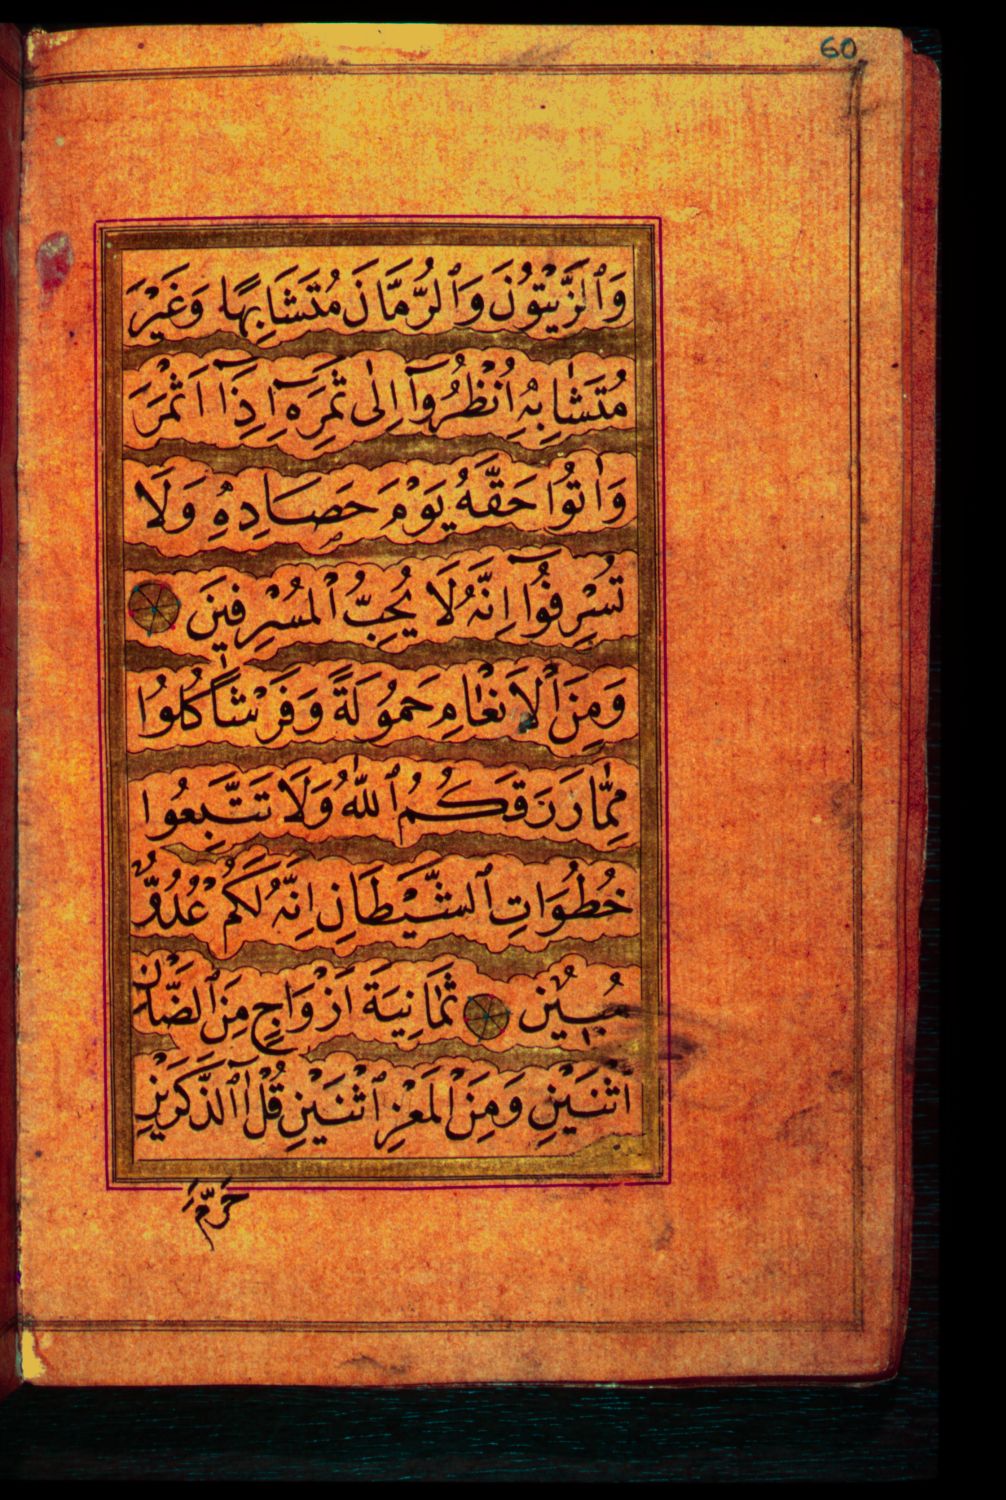 60
وَٱلزَّيْتُونَ وَٱلرُّمَّانَ مُتَشَابِهًا وَغَيْرَ
مُتَشَابِهٍ اُنْظُرُوٓا اِلٰى ثَمَرِهٓ اِذَٓا اَثْمَرَ
وَاٰتُوا حَقَّهُ يَوْمَ حَصَادِهِ وَلَا
تُسْرِفُوٓا اِنَّهُ لَا يُحِبُّ الْمُسْرِفِينَ
وَمِنَ ٱلْاَنْعَامِ حَمُولَةً وَفَرْشًا كُلُوا
مِمَّا رَزَقَكُمُ ٱللّٰهُ وَلَا تَتَّبِعُوا
خُطُوَاتِ ٱلشَّيْطَانِ اِنَّهُ لَكُمْ عَدُوٌّ
مُبِينٌ ثَمَانِيَةَ اَزْوَاجٍ مِنَ ٱلضَّأْنِ
اثْنَيْنِ وَمِنَ الْمَعْزِ ٱثْنَيْنِ قُلْ آٰلذَّكَرَيْنِ
حَرَّمَ